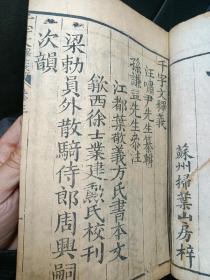 蘇州掃葉山房梓
千字文釋義
汪嘯尹先生纂輯
孫謙益先生叅注
江都葉敬義方氏書本文
歙西徐士業建勳氏校刊
梁勅員外散騎侍郎周興嗣
次韻